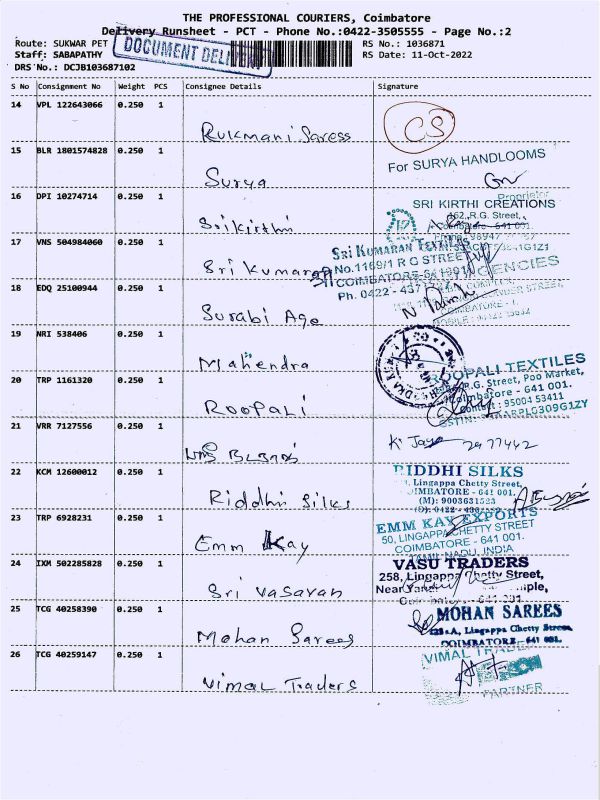 THE PROFESSIONAL COURIERS, Coimbatore
Delivery Runsheet - PCT - Phone No.:0422-3505555 - Page No.:2
Route: SUKWAR PET
RS No.: 1036871
Staff: SABAPATHY
RS Date: 11-Oct-2022
DRS No.: DCJB103687102
DOCUMENT DELI
S No Consignment No Weight PCS Consignee Details Signature
14 VPL 122643066 0.250 1
Rukmani Saress
CS
15 BLR 1801574828 0.250 1
Surya
For SURYA HANDLOOMS
Proprietor
16 DPI 10274714 0.250 1
Srikirthi
SRI KIRTHI CREATIONS
462, R.G. Street,
Coimbatore - 641 001.
17 VNS 504984060 0.250 1
Sri Kumaran
SRI KUMARAN TEXTILES
No.1169/1 R G STREET
COIMBATORE
Ph. 0422 - 437
18 EDQ 25100944 0.250 1
Surabi Age
AGENCIES
COIMBATORE - 1.
19 NRI 538406 0.250 1
Mahendra
20 TRP 1161320 0.250 1
ROOPALI
ROOPALI TEXTILES
R.G. Street, Poo Market,
Coimbatore - 641 001.
Contact : 95004 53411
21 VRR 7127556 0.250 1
K. Jaya 2977442
22 KCM 12600012 0.250 1
Riddhi Silks
RIDDHI SILKS
Lingappa Chetty Street,
COIMBATORE - 641 001.
(M): 9003631523
23 TRP 6928231 0.250 1
Emm Kay
EMM KAY EXPORTS
50, LINGAPPA CHETTY STREET
COIMBATORE - 641 001.
TAMIL NADU, INDIA
24 IXM 502285828 0.250 1
Sri vasavan
VASU TRADERS
258, Lingappa Chetty Street,
25 TCG 40258390 0.250 1
Mohan Sarees
MOHAN SAREES
Lingappa Chetty Street
COIMBATORE - 641 001.
26 TCG 40259147 0.250 1
Vimal Traders
VIMAL TRADE
PARTNER